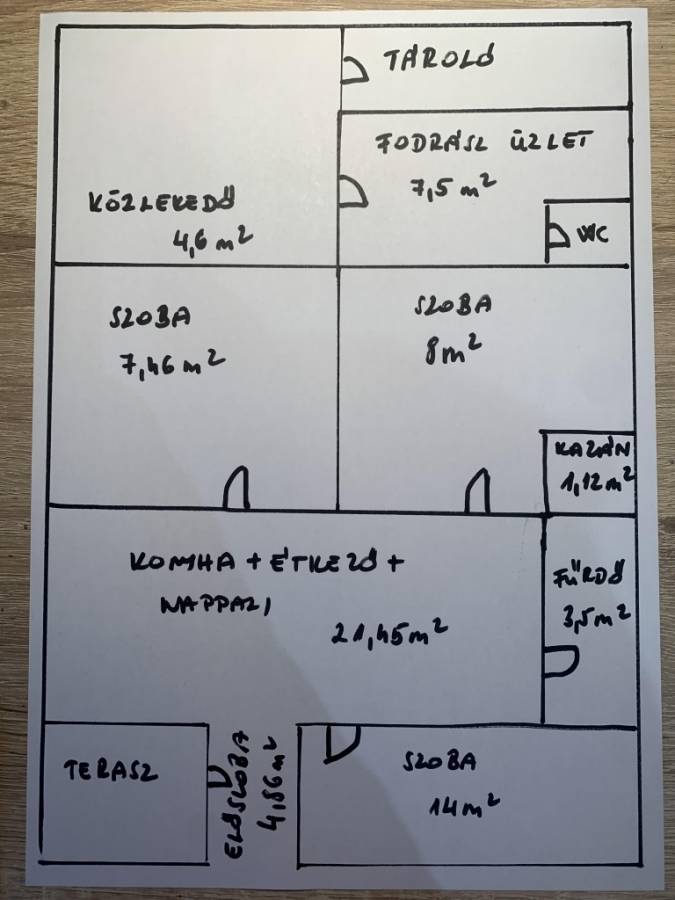 TÁROLÓ
FODRÁSZ ÜZLET
7,5 m²
KÖZLEKEDŐ
4,6 m²
WC
SZOBA
7,46 m²
SZOBA
8 m²
KAZÁN
1,12 m²
KONYHA + ÉTKEZŐ +
NAPPALI
21,45 m²
FÜRDŐ
3,5 m²
TERASZ
ELŐSZOBA
4,86 m²
SZOBA
14 m²